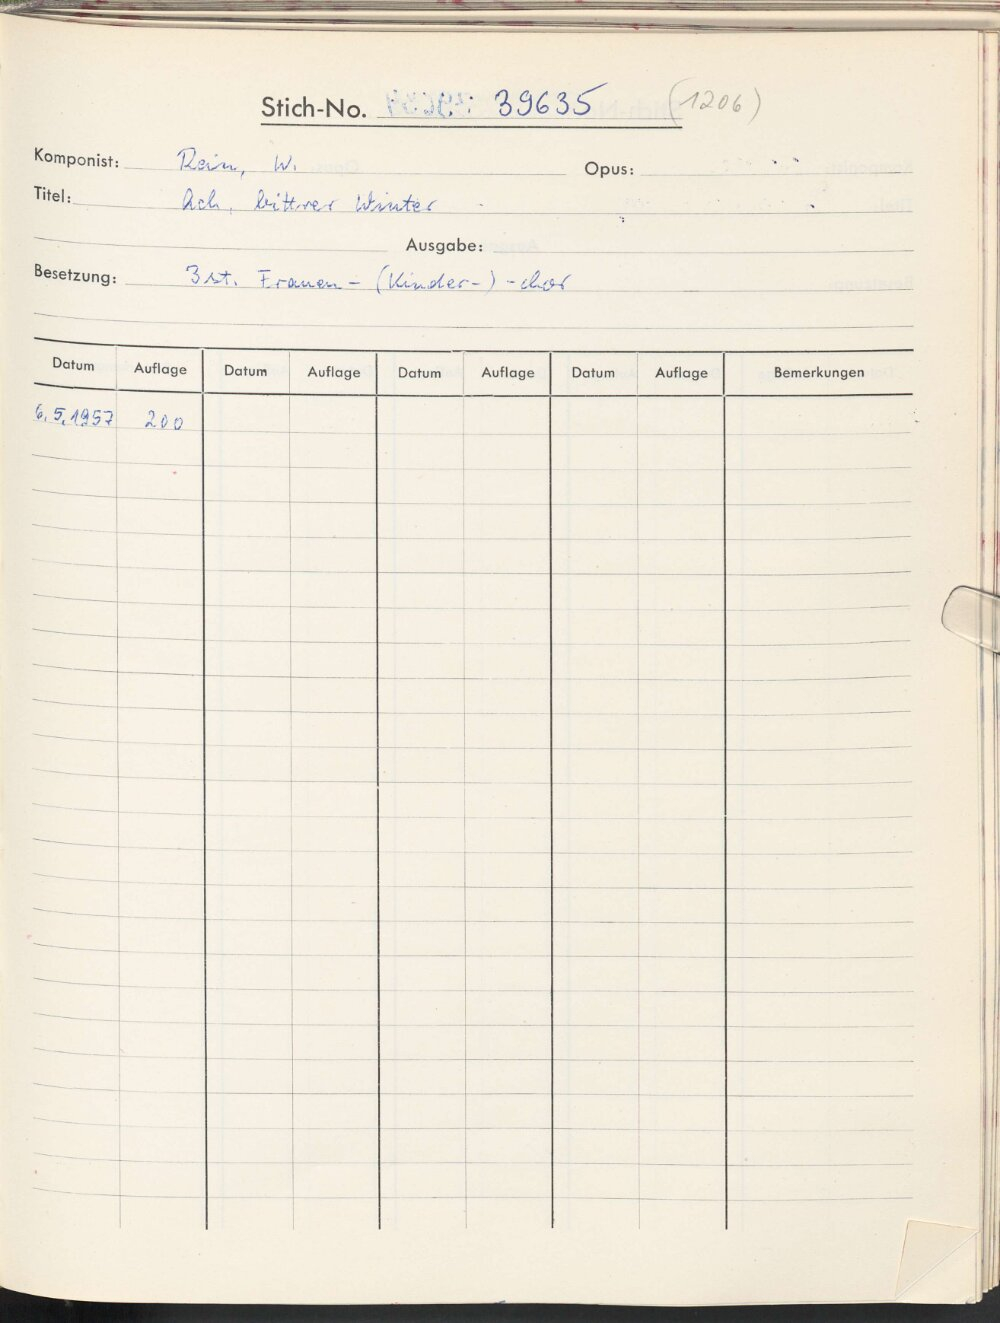 Stich-No. 39635 (1206)
Komponist: Rein, W. Opus:
Titel: Ach, bittrer Winter
Ausgabe:
Besetzung: 3st. Frauen-(Kinder-)-chor
Datum Auflage Datum Auflage Datum Auflage Datum Auflage Bemerkungen
6.5.1957 200